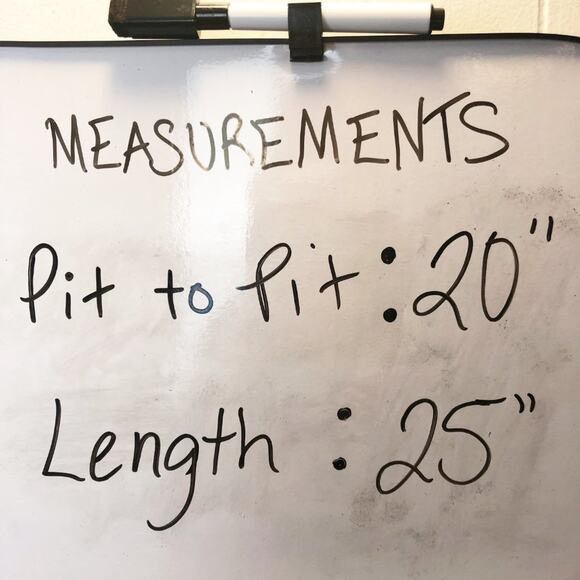 MEASUREMENTS
Pit to Pit : 20"
Length : 25"